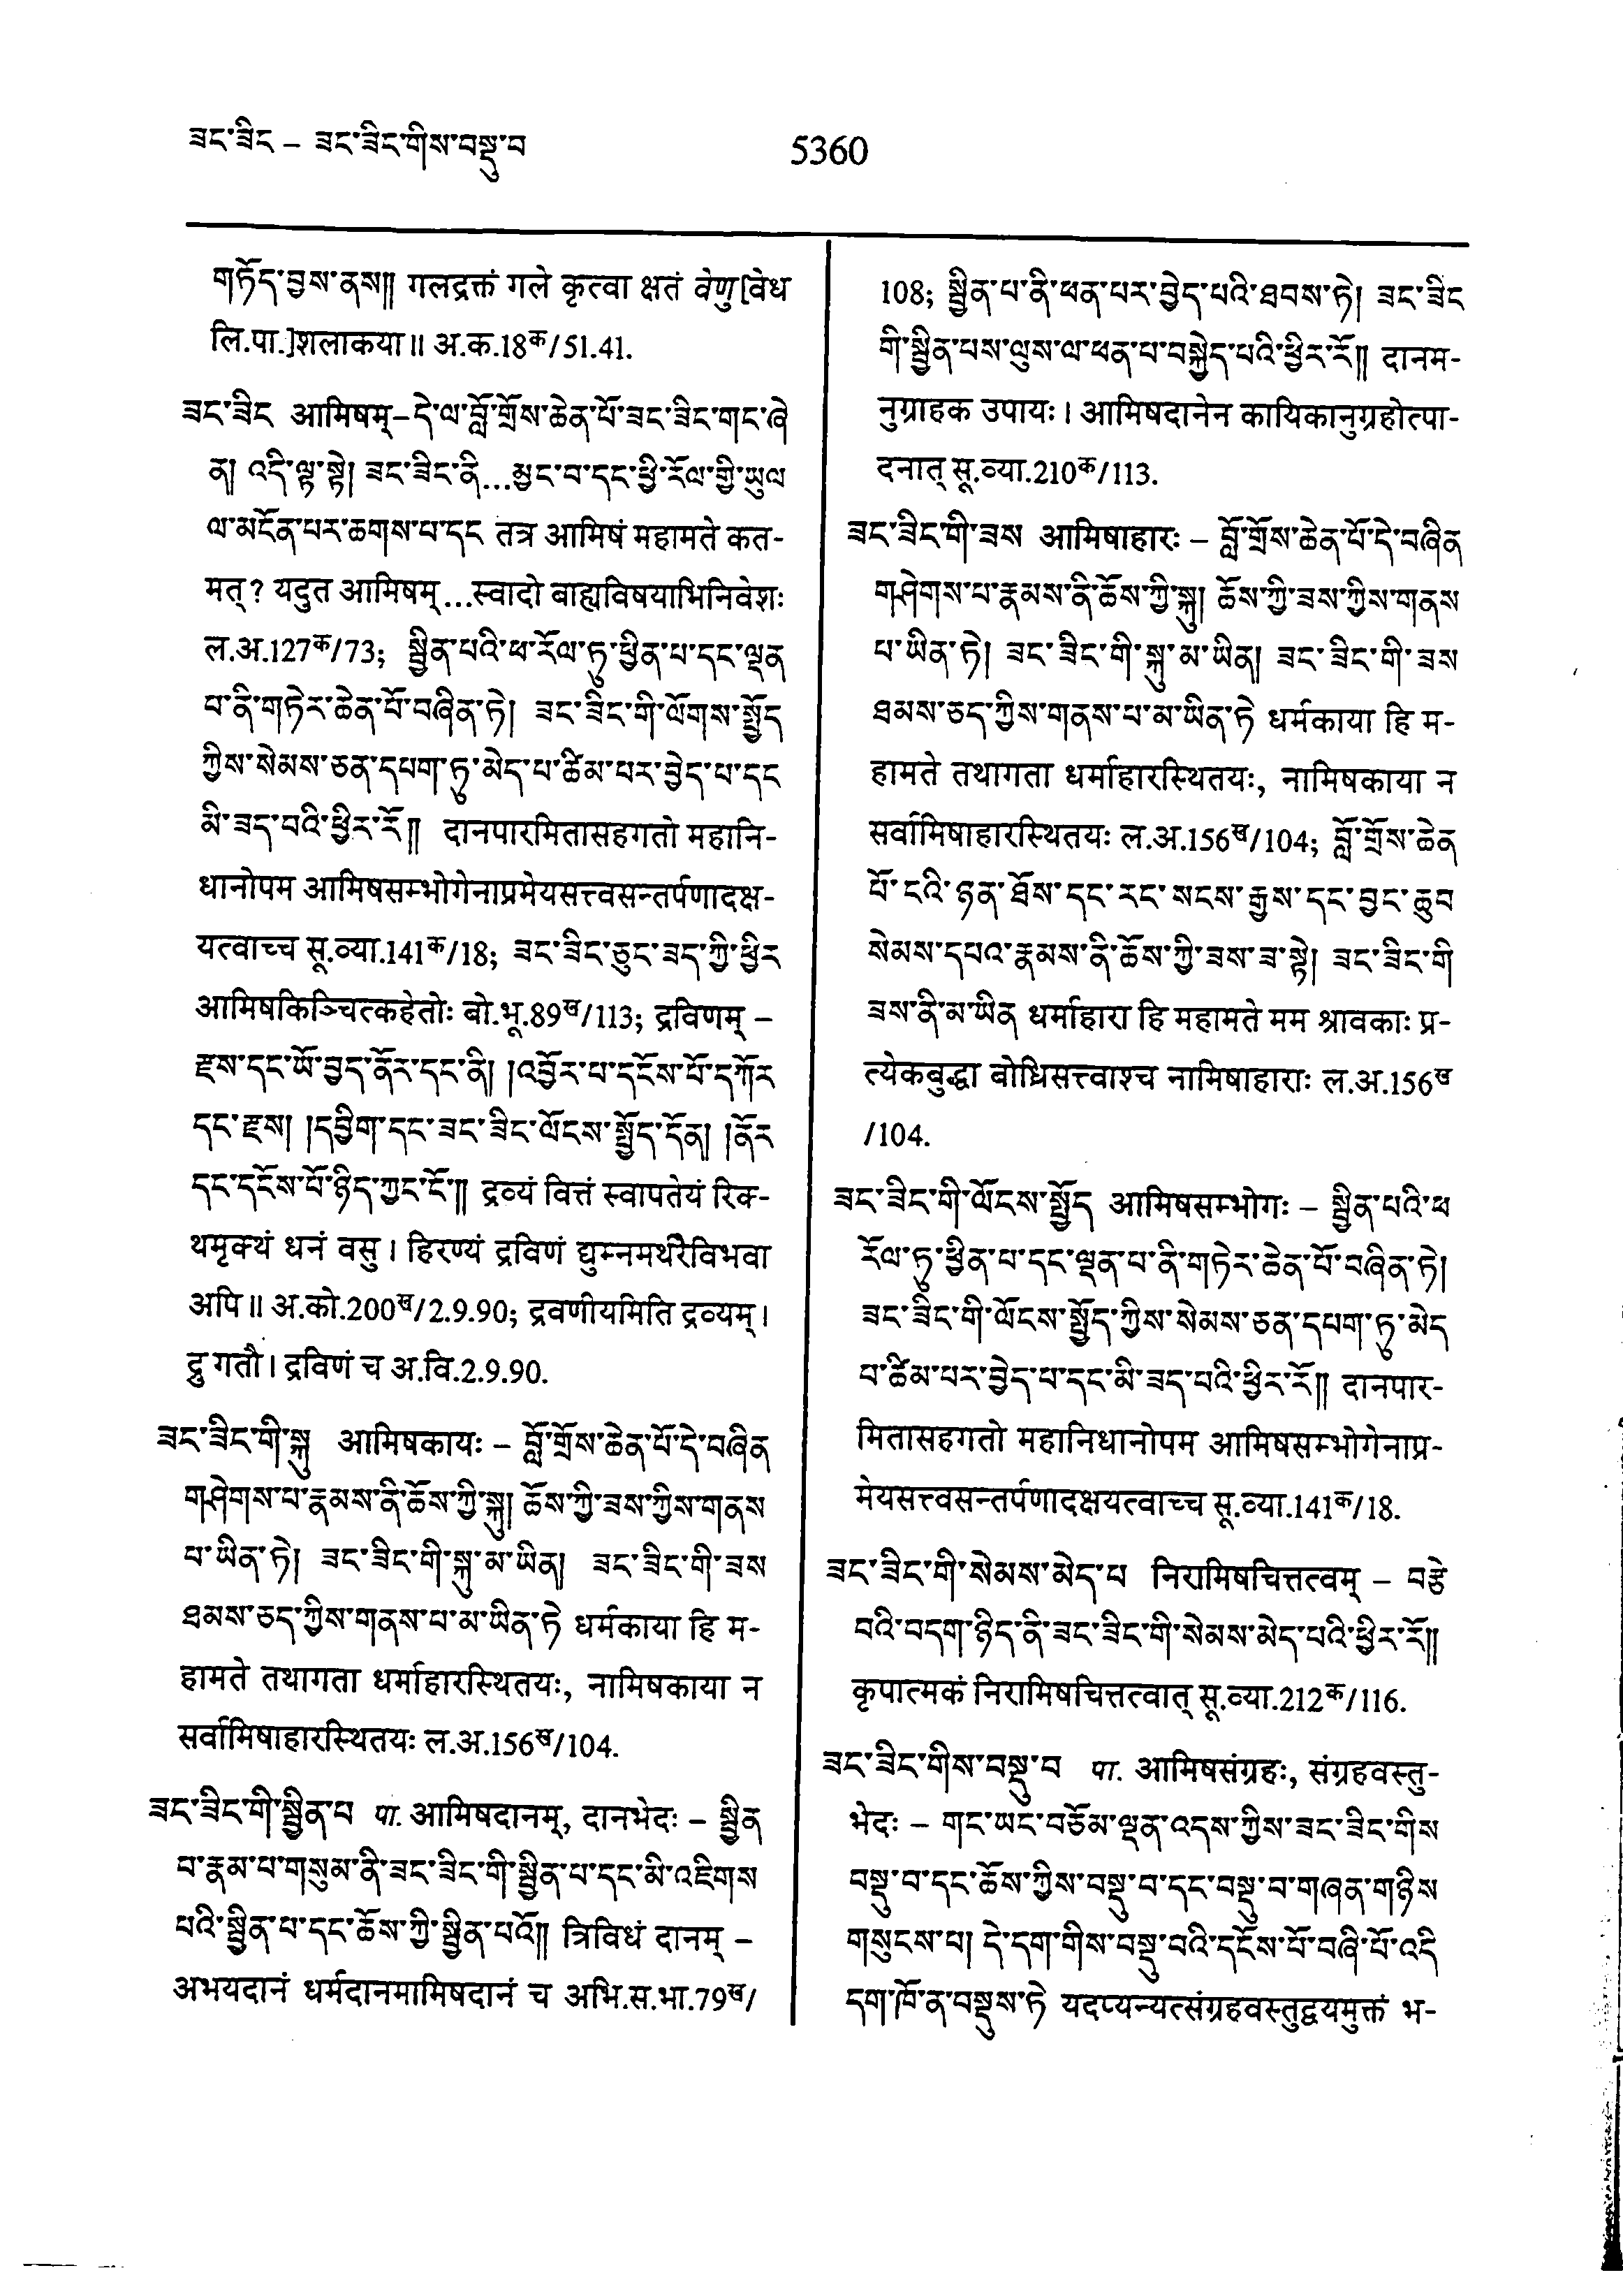 ཟང་ཟིང – ཟང་ཟིང་གིས་བསྡུ་བ
5360
གཏོད་བྱས་ནས༎ गलद्रक्तं गले कृत्वा क्षतं वेणु[वेध
लि.पा.]शलाकया॥ अ.क.18क/51.41.
ཟང་ཟིང आमिषम्–དེ་ལ་བློ་གྲོས་ཆེན་པོ་ཟང་ཟིང་གང་ཞེ
ན། འདི་ལྟ་སྟེ། ཟང་ཟིང་ནི...མྱང་བ་དང་ཕྱི་རོལ་གྱི་ཡུལ
ལ་མངོན་པར་ཆགས་པ་དང तत्र आमिषं महामते कत-
मत्? यदुत आमिषम्...स्वादो बाह्यविषयाभिनिवेशः
ल.अ.127क/73; སྦྱིན་པའི་ཕ་རོལ་ཏུ་ཕྱིན་པ་དང་ལྡན
པ་ནི་གཏེར་ཆེན་པོ་བཞིན་ཏེ། ཟང་ཟིང་གི་ལོགས་སྤྱོད
ཀྱིས་སེམས་ཅན་དཔག་ཏུ་མེད་པ་ཚིམ་པར་བྱེད་པ་དང
མི་ཟད་བའི་ཕྱིར་རོ༎ दानपारमितासहगतो महानि-
धानोपम आमिषसम्भोगेनाप्रमेयसत्त्वसन्तर्पणादक्ष-
यत्वाच्च सू.व्या.141क/18; ཟང་ཟིང་ཅུང་ཟད་ཀྱི་ཕྱིར
आमिषकिञ्चित्कहेतोः बो.भू.89ख/113; द्रविणम् –
རྫས་དང་ཡོ་བྱད་ནོར་དང་ནི། །འབྱོར་པ་དངོས་པོ་དཀོར
དང་རྫས། །དབྱིག་དང་ཟང་ཟིང་ལོངས་སྤྱོད་དོན། །ནོར
དང་དངོས་པོ་ཉིད་ཀྱང་ངོ་༎ द्रव्यं वित्तं स्वापतेयं रिक-
थमृक्थं धनं वसु। हिरण्यं द्रविणं द्युम्नमर्थरैविभवा
अपि॥ अ.को.200ख/2.9.90; द्रवणीयमिति द्रव्यम्।
द्रु गतौ। द्रविणं च अ.वि.2.9.90.
ཟང་ཟིང་གི་སྐུ आमिषकायः – བློ་གྲོས་ཆེན་པོ་དེ་བཞིན
གཤེགས་པ་རྣམས་ནི་ཆོས་ཀྱི་སྐུ། ཆོས་ཀྱི་ཟས་ཀྱིས་གནས
པ་ཡིན་ཏེ། ཟང་ཟིང་གི་སྐུ་མ་ཡིན། ཟང་ཟིང་གི་ཟས
ཐམས་ཅད་ཀྱིས་གནས་པ་མ་ཡིན་ཏེ धर्मकाया हि म-
हामते तथागता धर्माहारस्थितयः, नामिषकाया न
सर्वामिषाहारस्थितयः ल.अ.156ख/104.
ཟང་ཟིང་གི་སྦྱིན་པ पा. आमिषदानम्, दानभेदः – སྦྱིན
པ་རྣམ་པ་གསུམ་ནི་ཟང་ཟིང་གི་སྦྱིན་པ་དང་མི་འཇིགས
པའི་སྦྱིན་པ་དང་ཆོས་ཀྱི་སྦྱིན་པའོ༎ त्रिविधं दानम् –
अभयदानं धर्मदानमामिषदानं च अभि.स.भा.79ख/
108; སྦྱིན་པ་ནི་ཕན་པར་བྱེད་པའི་ཐབས་ཏེ། ཟང་ཟིང
གི་སྦྱིན་པས་ལུས་ལ་ཕན་པ་བསྐྱེད་པའི་ཕྱིར་རོ༎ दानम-
नुग्राहक उपायः। आमिषदानेन कायिकानुग्रहोत्पा-
दनात् सू.व्या.210क/113.
ཟང་ཟིང་གི་ཟས आमिषाहारः – བློ་གྲོས་ཆེན་པོ་དེ་བཞིན
གཤེགས་པ་རྣམས་ནི་ཆོས་ཀྱི་སྐུ། ཆོས་ཀྱི་ཟས་ཀྱིས་གནས
པ་ཡིན་ཏེ། ཟང་ཟིང་གི་སྐུ་མ་ཡིན། ཟང་ཟིང་གི་ཟས
ཐམས་ཅད་ཀྱིས་གནས་པ་མ་ཡིན་ཏེ धर्मकाया हि म-
हामते तथागता धर्माहारस्थितयः, नामिषकाया न
सर्वामिषाहारस्थितयः ल.अ.156ख/104; བློ་གྲོས་ཆེན
པོ་ངའི་ཉན་ཐོས་དང་རང་སངས་རྒྱས་དང་བྱང་ཆུབ
སེམས་དཔའ་རྣམས་ནི་ཆོས་ཀྱི་ཟས་ཟ་སྟེ། ཟང་ཟིང་གི
ཟས་ནི་མ་ཡིན धर्माहारा हि महामते मम श्रावकाः प्र-
त्येकबुद्धा बोधिसत्त्वाश्च नामिषाहाराः ल.अ.156ख
/104.
ཟང་ཟིང་གི་ལོངས་སྤྱོད आमिषसम्भोगः – སྦྱིན་པའི་ཕ
རོལ་ཏུ་ཕྱིན་པ་དང་ལྡན་པ་ནི་གཏེར་ཆེན་པོ་བཞིན་ཏེ།
ཟང་ཟིང་གི་ལོངས་སྤྱོད་ཀྱིས་སེམས་ཅན་དཔག་ཏུ་མེད
པ་ཚིམ་པར་བྱེད་པ་དང་མི་ཟད་པའི་ཕྱིར་རོ༎ दानपार-
मितासहगतो महानिधानोपम आमिषसम्भोगेनाप्र-
मेयसत्त्वसन्तर्पणादक्षयत्वाच्च सू.व्या.141क/18.
ཟང་ཟིང་གི་སེམས་མེད་པ निरामिषचित्तत्वम् – བརྩེ
བའི་བདག་ཉིད་ནི་ཟང་ཟིང་གི་སེམས་མེད་པའི་ཕྱིར་རོ༎
कृपात्मकं निरामिषचित्तत्वात् सू.व्या.212क/116.
ཟང་ཟིང་གིས་བསྡུ་བ पा. आमिषसंग्रहः, संग्रहवस्तु-
भेदः – གང་ཡང་བཅོམ་ལྡན་འདས་ཀྱིས་ཟང་ཟིང་གིས
བསྡུ་བ་དང་ཆོས་ཀྱིས་བསྡུ་བ་དང་བསྡུ་བ་གཞན་གཉིས
གསུངས་པ། དེ་དག་གིས་བསྡུ་བའི་དངོས་པོ་བཞི་པོ་འདི
དག་ཁོ་ན་བསྡུས་ཏེ यदप्यन्यत्संग्रहवस्तुद्वयमुक्तं भ-